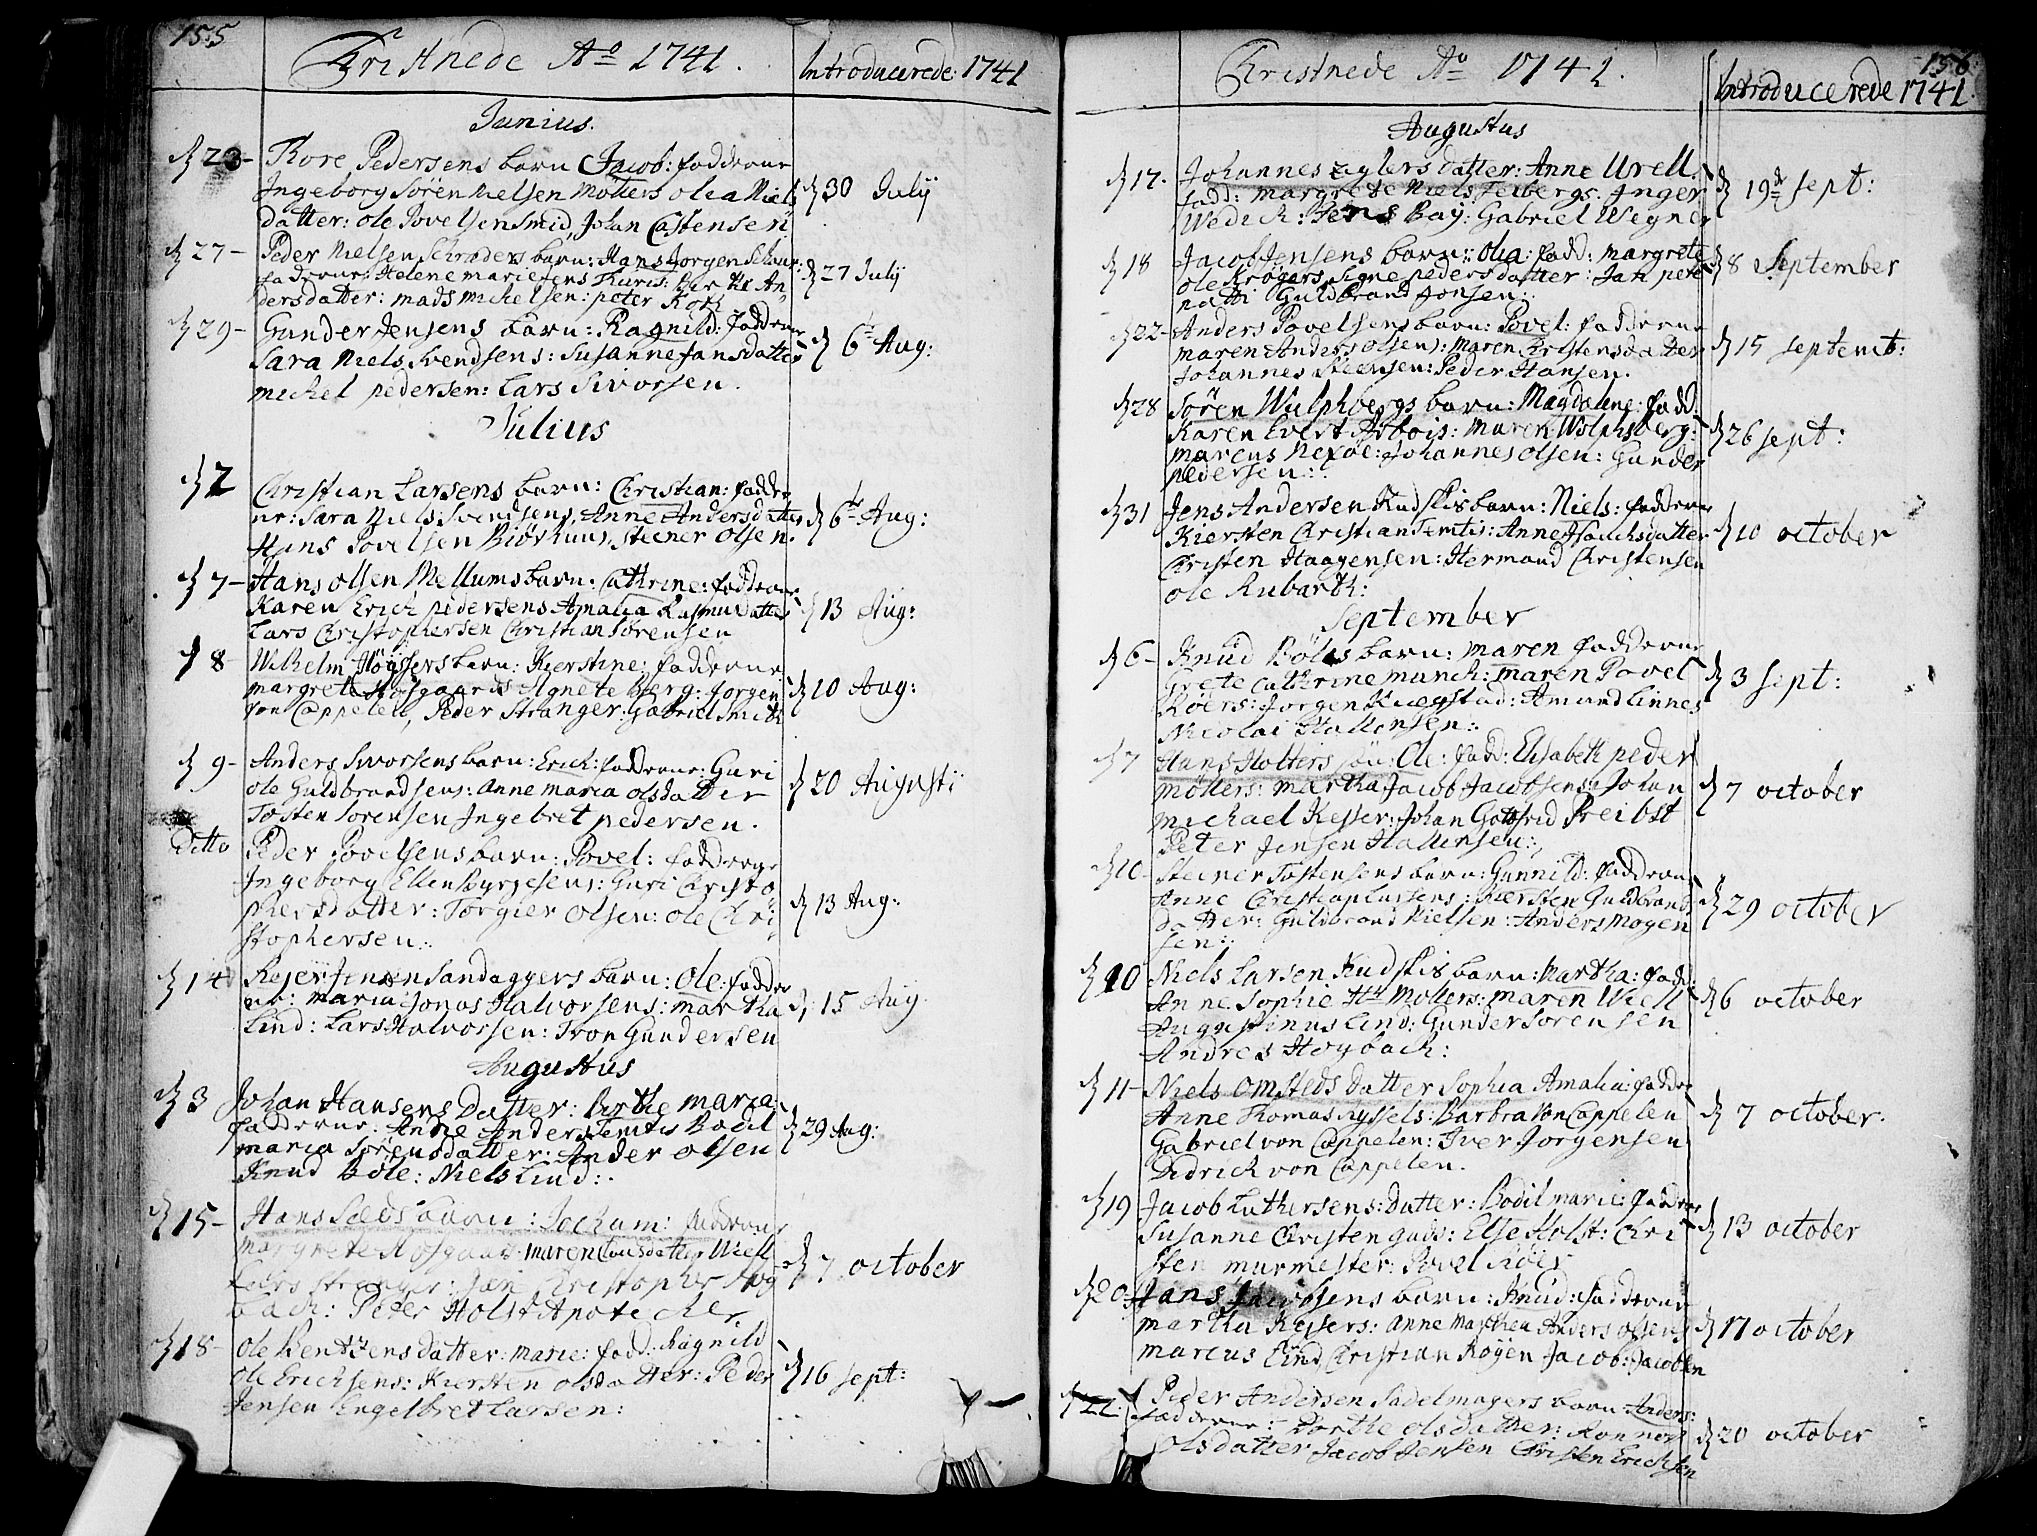 155
Christnede Aō 1741.
Introducerede 1741
Junius.
d 23- Tore Pedersens barn Jacob: fadderne
Ingeborg Sören Nielsen Möllers Olea Niels
datter: Ole Povelsen Smid, Johan Castensen
d 30 Julij
d 27- Peder Nielsen Schraders barn: Hans Jorgen
fadderne Helene Marie Jens Thuris: Birthe An
dersdatter: Mads Michelsen: Peter Koch
d 27 Julij
d 29- Gunder Jensens barn: Ragnild: fadderne
Sara Niels Svendsens: Susanne Jansdatter
Michel Pedersen: Lars Sivorsen.
d 6t Aug:
Julius
d 2 Christian Larsens barn: Christian: fadder
ne: Sara Niels Svendsens, Anne Andersdatter
Hans Povelsen Biörhuus, Steener Olsen.
d 6t Aug:
d 7- Hans Olsen Mellums barn: Cathrine: fadderne
Karen Erich Pedersens Amalia Rasmusdatter
Lars Christophersen Christian Sörensen
d 13 Aug:
d 8- Wilhelm Höyssers barn: Kierstine: fadderne
Margrete Hofgaards Agnete Berg: Jorgen
von Cappelen, Peder Stranger: Gabriel Smith
d 10 Aug:
d 9- Anders Sivorsens barn: Erich: fadderne: Guri
Ole Guldbrandsens: Anne Maria Olsdatter
Tosten Sorensen Ingebret Pedersen.
d 20 Augustij
Ditto Peder Povelsens barn: Povel: fadderne
Ingeborg Ellen Byrgesens: Guri Christo
phersdatter: Torgier Olsen: Ole Chri
stophersen:.
d 13 Aug:
d 14 Rejer Jensen Sandaggers barn: Ole: fadder
ne: Maria Jonas Halvorsens: Martha
Lind: Lars Halvorsen: Tron Gundersen
d 15 Aug
Augustus
d 3 Johan Hansens Datter: Birthe Maria
fadderne: Anne Anders Temtis Bodil
Maria Sörensdatter: Ander Olsen
Knud Böle: Niels Lind:.
d 29 Aug:
d 15- Hans Seeds barn: Jocham: fadderne
Margrete Hofgaar Maren Wiell
Lars Stranger: Jan Christopher Høg
bach: Peter Holst Apotecher
d 7 october
d 18- Ole Bentzens datter: Marie: fadd: Ragnild
Ole Erichsens: Kiersten Olsdatter: Peder
Jensen Engelbret Larsen:
d 16 sept:
156
Christnede Aō 1741.
Introducerede 1741.
Augustus
d 17. Johannes Zylers datter: Anne Urell.
fadd: Margrete Niels Feibergs. Inger
Wedich: Jens Bay: Gabriel Wegner
d 19de sept:
d 18 Jacob Jensens barn: Olea: fadd: Margrete
Ole Krögers Signe Peders datter: Jan Pete
Guldbrand Jonsen:.
d 8 September
d 22- Anders Povelsens barn: Povel: fadderne
Maren Anders Olsens: Maren Christensdatter
Johannes Steensen: Peder Hansen.
d 15 septemt:
d 28 Sören Wulphbergs barn: Magdalene: fadd.
Karen Evert Arbois: Maren Wolphsberg:
Marcus Nexöe: Johannes Olsen: Gunder
Pedersen:.
d 26 sept:
d 31 Jens Andersen Kudskis barn: Niels: fadderne
Kiersten Christian Temtis: Anne Isachsdatter
Christen Haagensen: Hermand Christensen
Ole Rubarth:
d 10 october
September
d 6- Knud Böles barn: Maren fadderne
Grete Cathrine Munch: Maren Povel
Röers: Jorgen Kragstad: Amund Linnes
Nicolai Hallensen:.
d 3 sept:
d 7 Hans Holters sön: Ole: fadd: Elisabeth Peder
Möllers: Martha Jacob Jacobsens: Johan
Michael Kejser: Johan Gotfred Preibst
Peter Jensen Hallensen:.
d 7 october
d 10- Steiner Tostensens barn: Gunnild: fadderne
Anne Christian Larsens: Kiersten Guldbrands
datter: Guldbrand Nielsen: Anders Mogen
sen:.
d 29 october
d 10 Niels Larsen Kudskis barn: Martha: fadd:
Anne Sophie Möllers: Maren Wiell
Augustinus Lind: Gunder Sörensen
Andres Höybach:
d 6 october
d 11- Niels Omsteds Datter Sophia Amalia: fadder
Anne Thomas Nyssels: Barbra von Cappelen
Gabriel von Cappelen: Iver Jorgensen
Didrich von Cappelen.
d 7 october.
d 19 Jacob Luthersens: Datter: Bodil Marie: fadder
Susanne Christen Guds: Else Holst: Chri
sten Murmester: Povel Röis
d 13 october
d 20. Hans Jacobsens barn: Knud: fadderne
Martha Kejsers: Anne Marthea Anders Olsens
Marcus Lind Christian Röyen Jacob: Jacobsen
d 17 october
d 22 Peder Andersen Sadelmagers barn Anders:
fadderne: Dorthe Olsdatter: Ronnov
Olsdatter Jacob Jensen Christen Erichsen
d 20 october